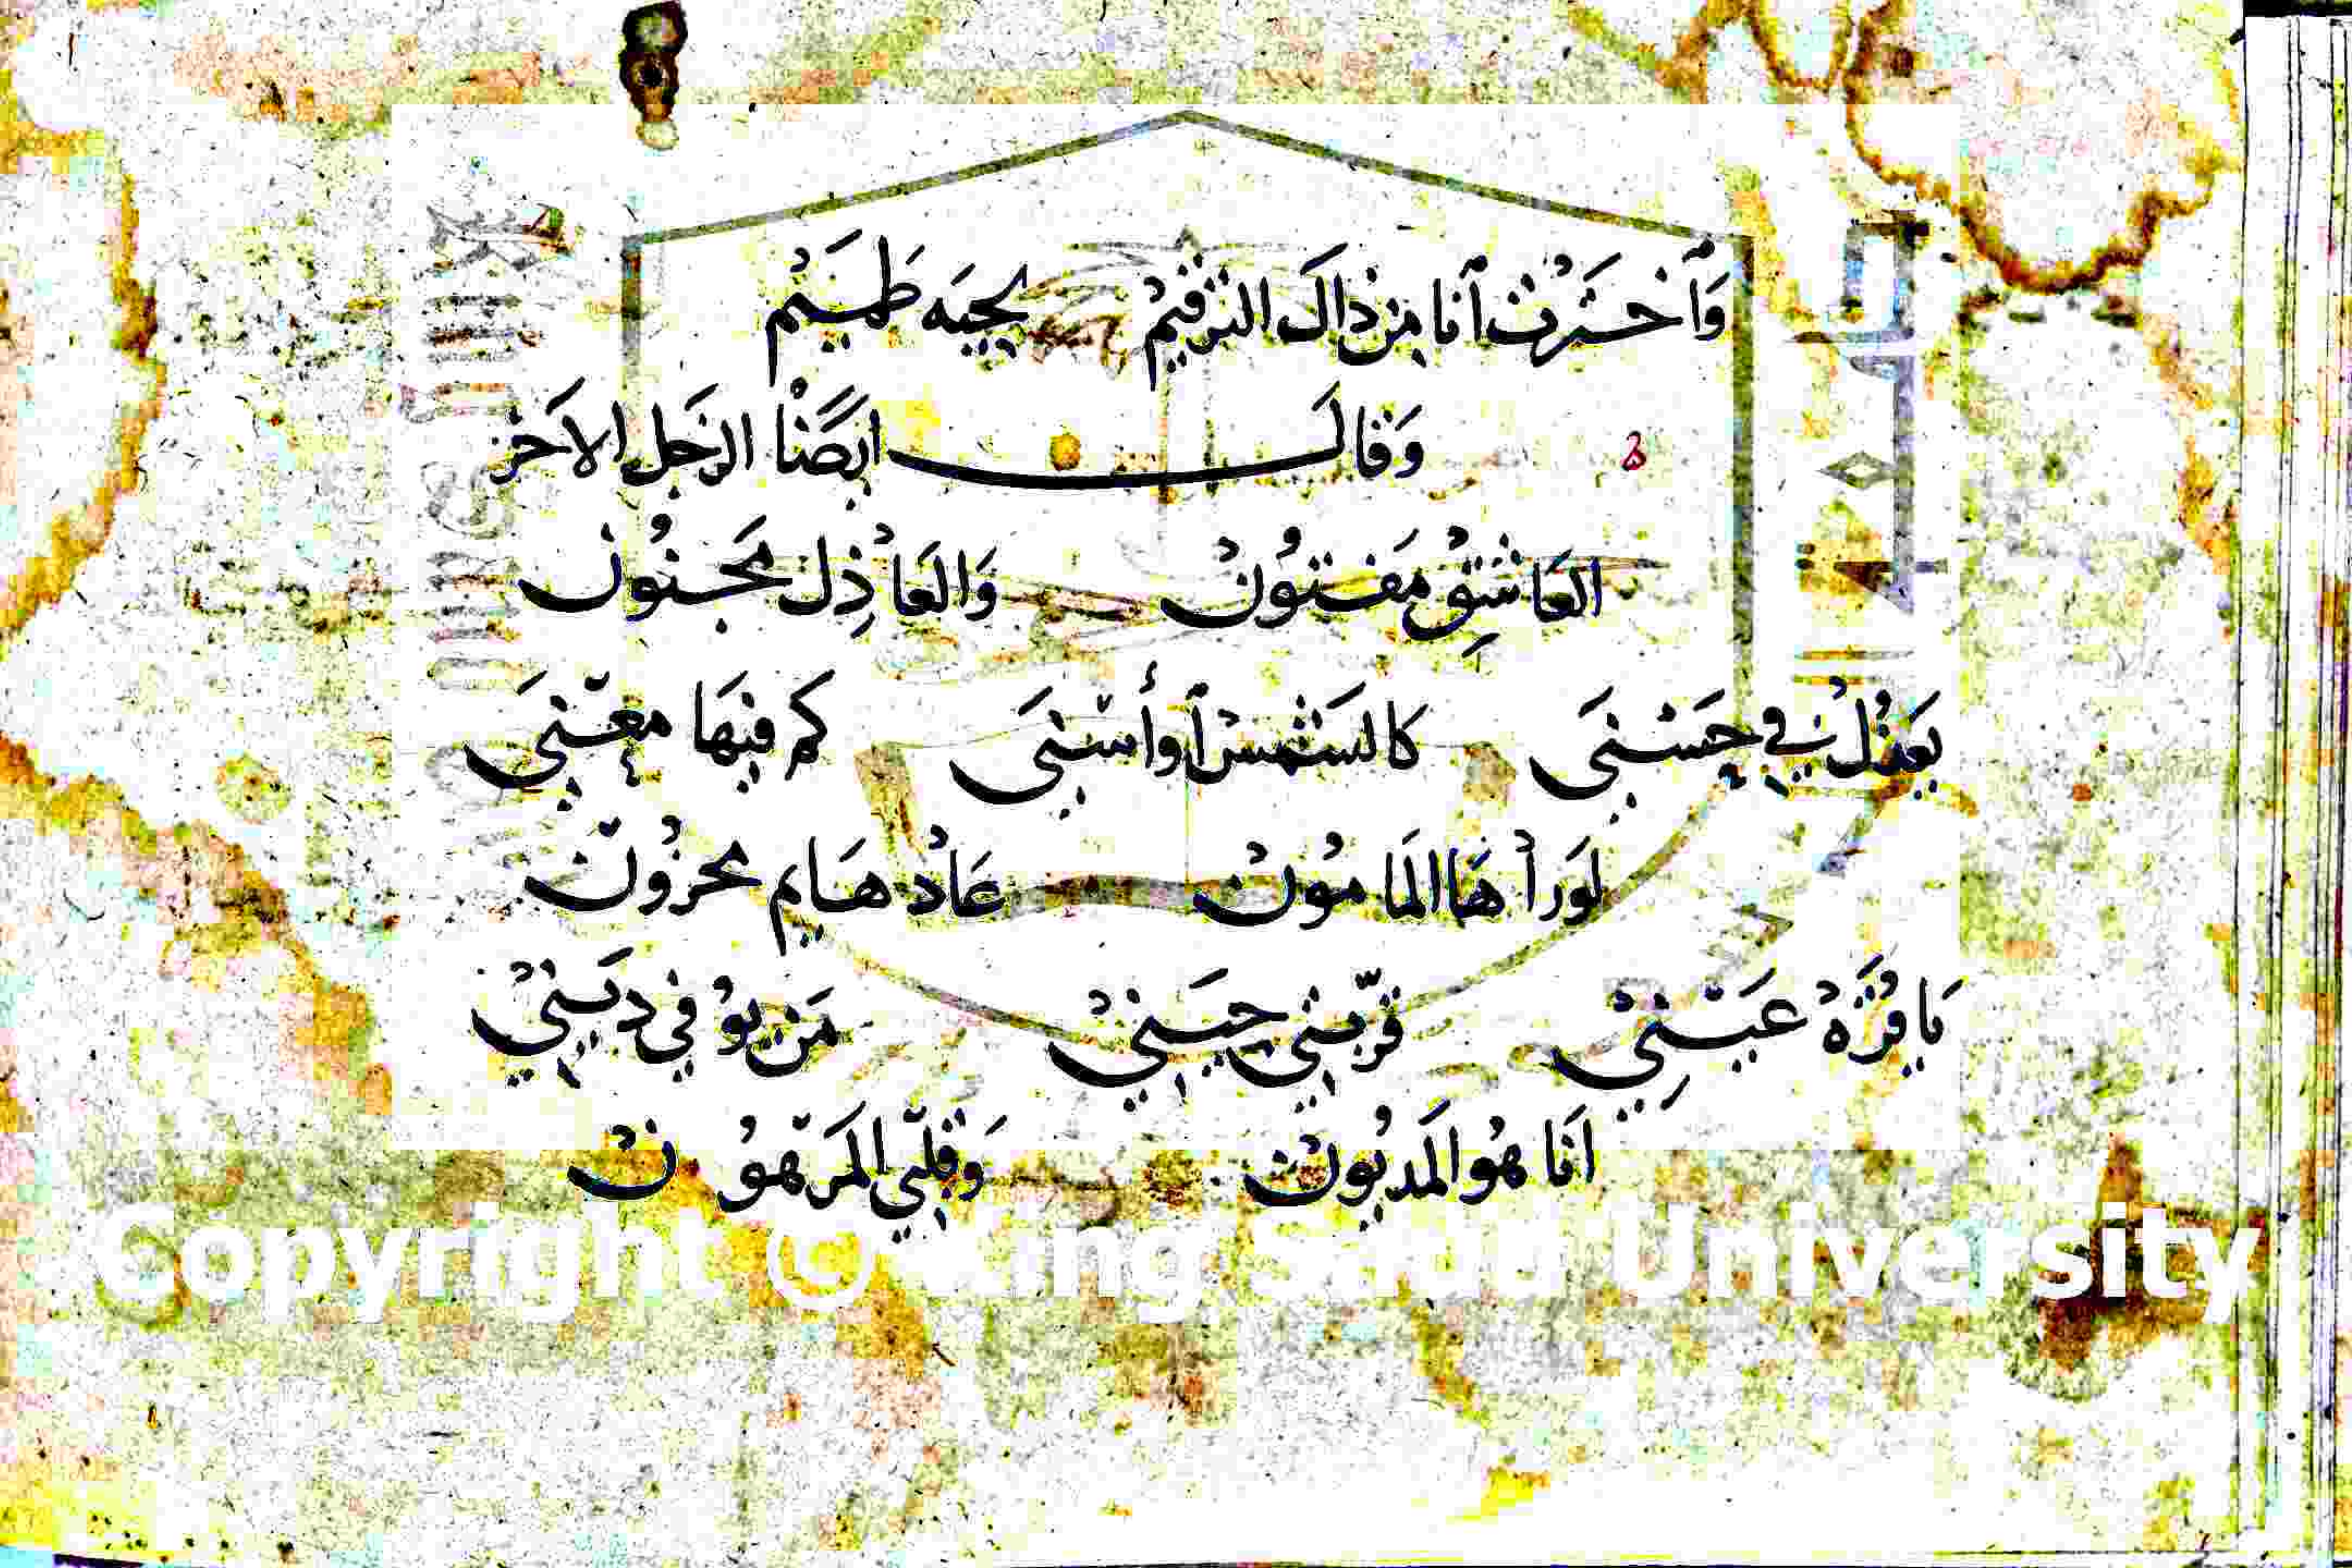 وَٱخـتَرْت ٱنا مِن ذاكَ الترقيمْ بجيبَه طَمَيْم
وَقالَـــــت ايضًا الزجل الاخَر
العَاشِقْ مَفتُونْ وَالعَاذِلْ مَجنُون
يَعذُلْ في حَسْنىَ كالشمسْ ٱو أسنىَ كم فيهَا معنىَ
لَوراْهَا المَامُونْ عَادْ هَايم محزُون
يَا قُرَّهْ عَيْنِي قرّبْني حِيَني مَن يو في دِيَني
اَنا هُو المَديُونْ وَقلبي المَرهُونْ
Copyright © King Saud University